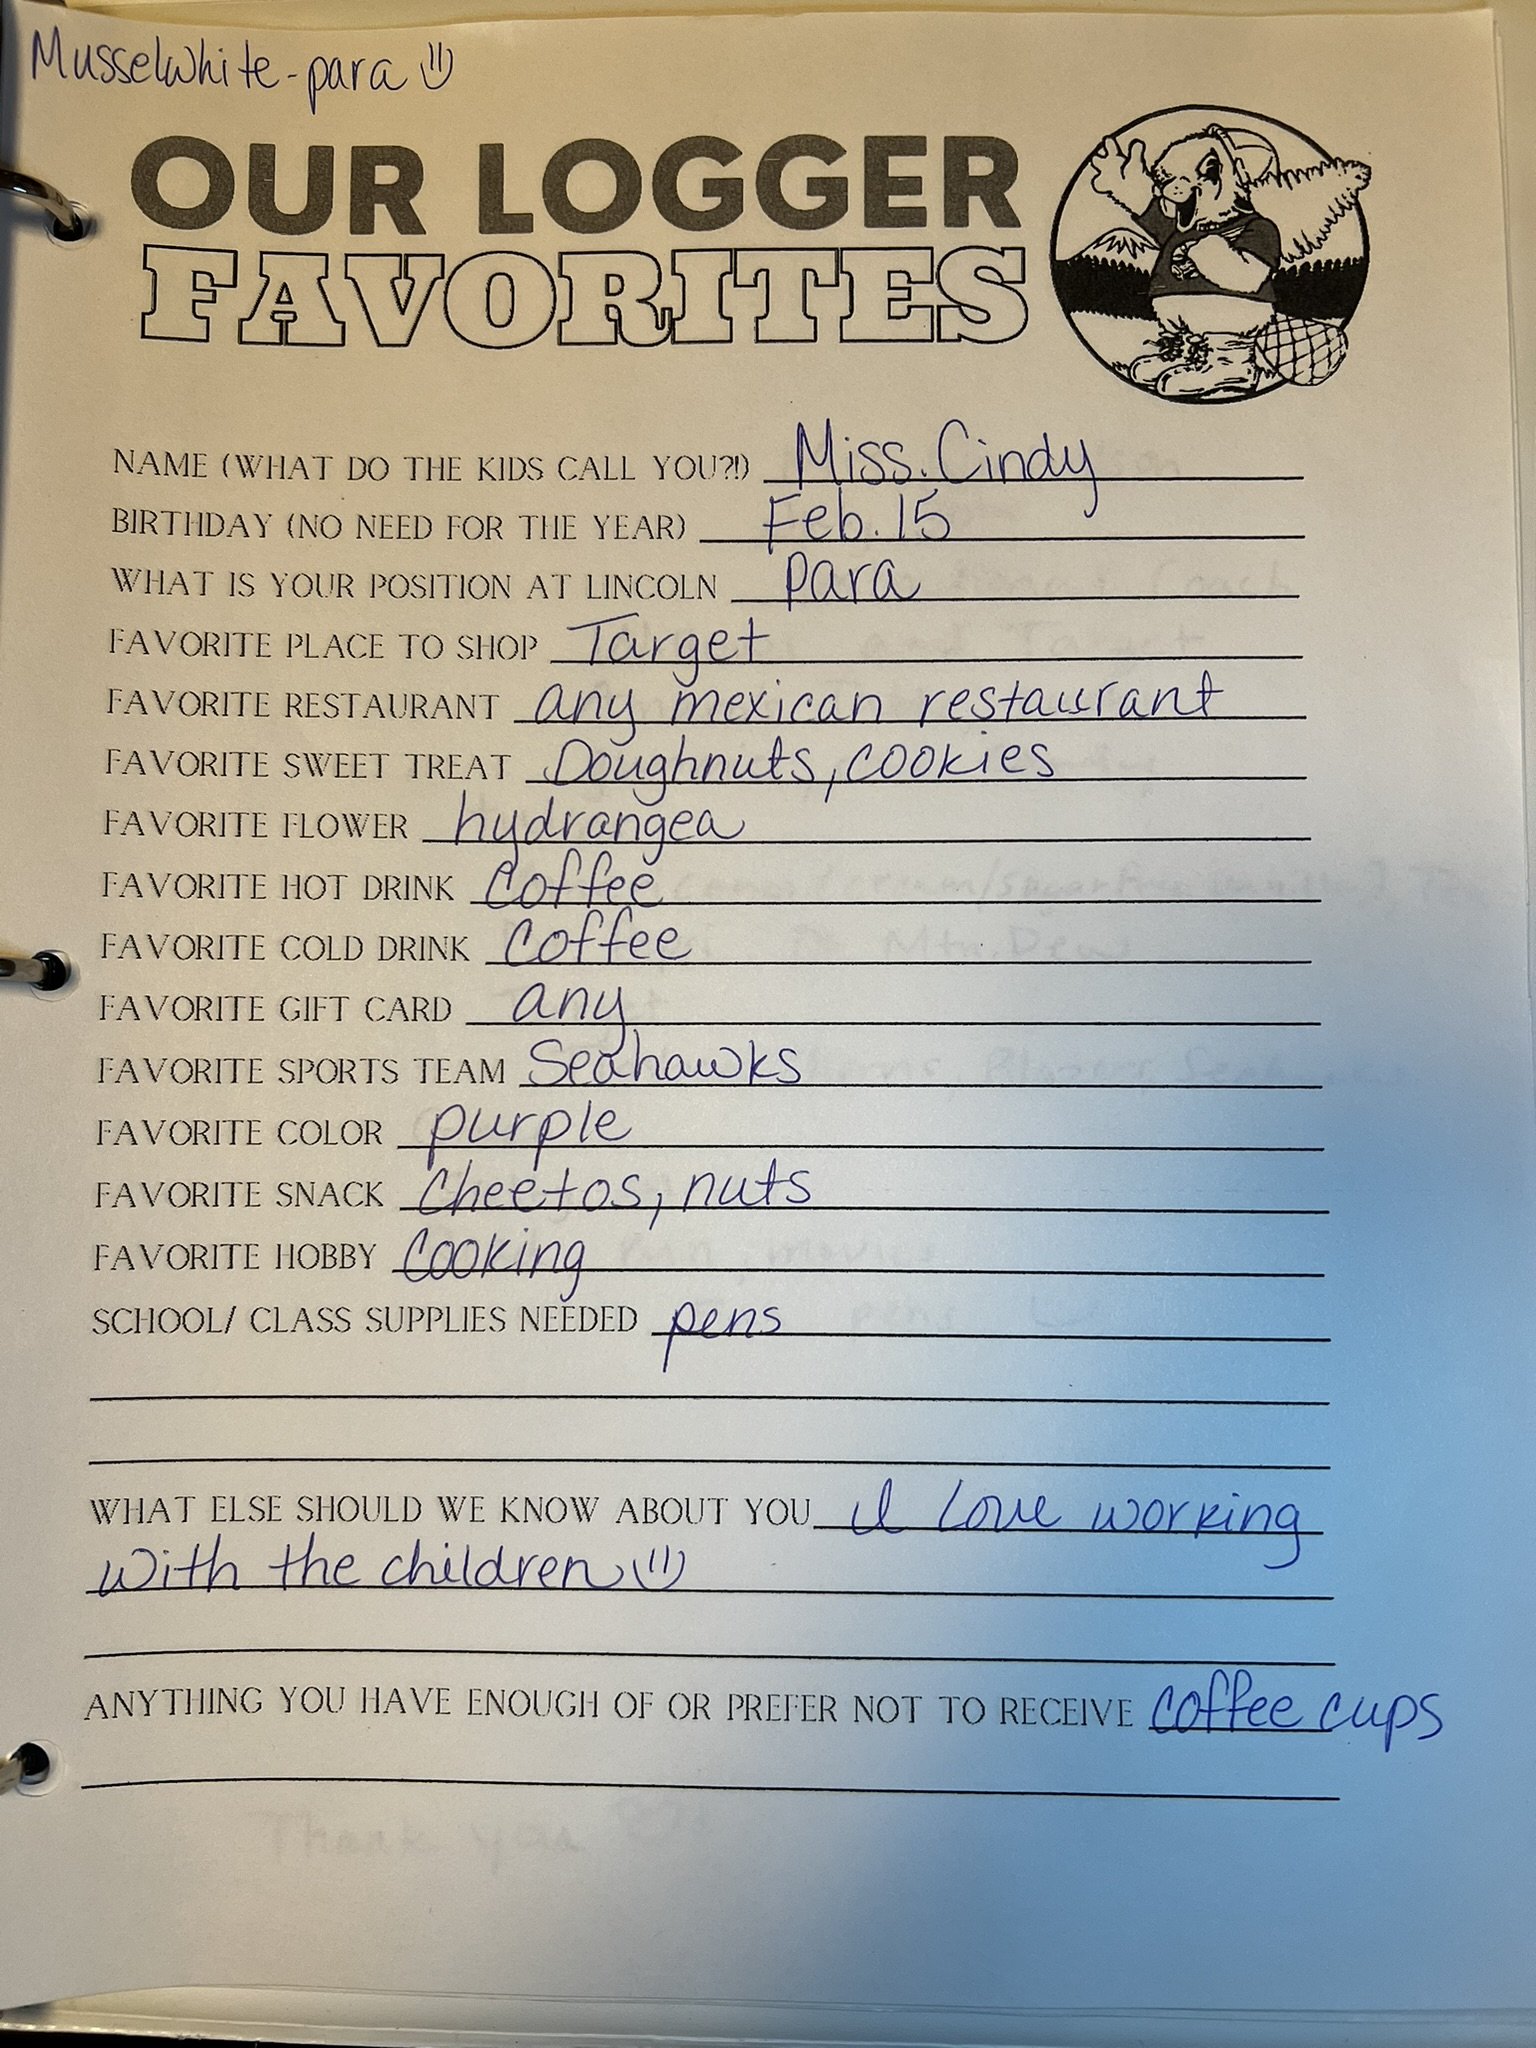 Musselwhite - para
OUR LOGGER
FAVORITES
NAME (WHAT DO THE KIDS CALL YOU?!) Miss. Cindy
BIRTHDAY (NO NEED FOR THE YEAR) Feb. 15
WHAT IS YOUR POSITION AT LINCOLN para
FAVORITE PLACE TO SHOP Target
FAVORITE RESTAURANT any mexican restaurant
FAVORITE SWEET TREAT Doughnuts, cookies
FAVORITE FLOWER hydrangea
FAVORITE HOT DRINK coffee
FAVORITE COLD DRINK coffee
FAVORITE GIFT CARD any
FAVORITE SPORTS TEAM Seahawks
FAVORITE COLOR purple
FAVORITE SNACK cheetos, nuts
FAVORITE HOBBY cooking
SCHOOL/ CLASS SUPPLIES NEEDED pens
WHAT ELSE SHOULD WE KNOW ABOUT YOU I love working
with the children
ANYTHING YOU HAVE ENOUGH OF OR PREFER NOT TO RECEIVE coffee cups
Thank you